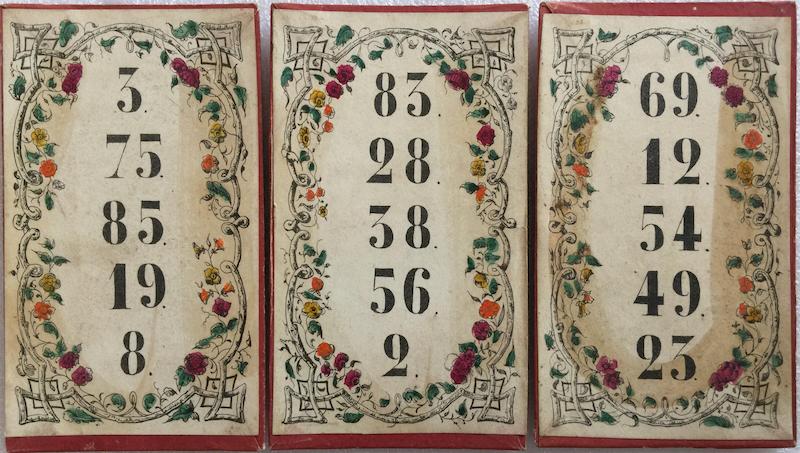 3.
75.
85.
19.
8.
83.
28.
38.
56.
2.
69.
12.
54.
49.
23.